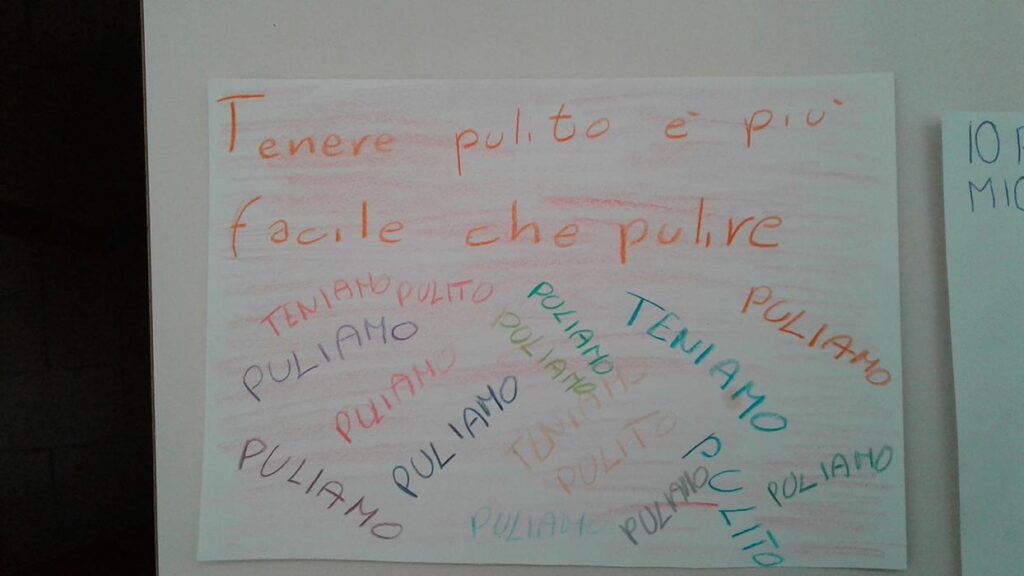 Tenere pulito è più
facile che pulire
TENIAMO PULITO
PULIAMO
PULIAMO
PULIAMO
TENIAMO
PULIAMO
PUIAMO
PULIAMO
TENIAMO
PULITO
PULIAMO
PULIAMO
PULIAMO
PULITO
PULIAMO
10